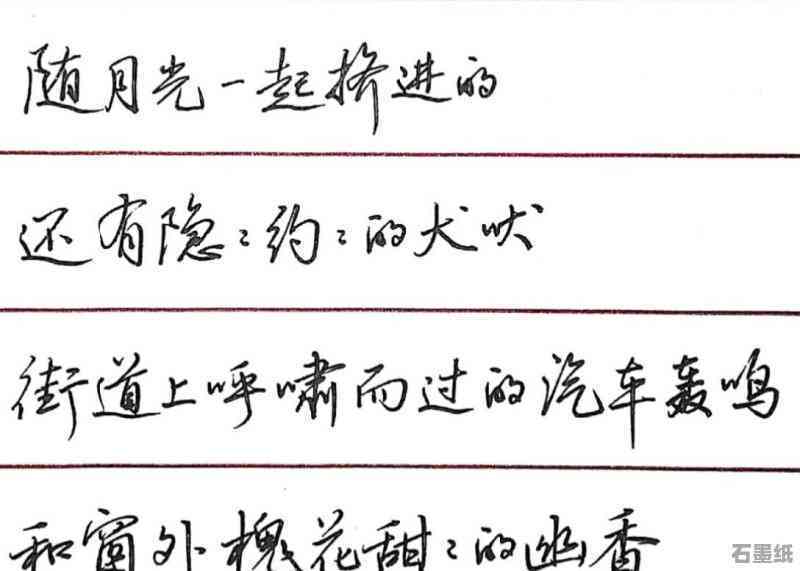 随月光一起挤进的
还有隐〻约〻的犬吠
街道上呼啸而过的汽车轰鸣
和窗外槐花甜〻的幽香
石墨纸